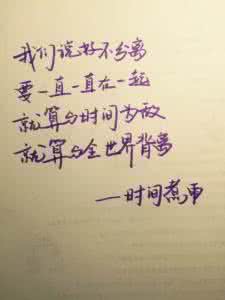 我们说好不分离
要一直一直在一起
就算与时间为敌
就算与全世界背离
——时间煮雨